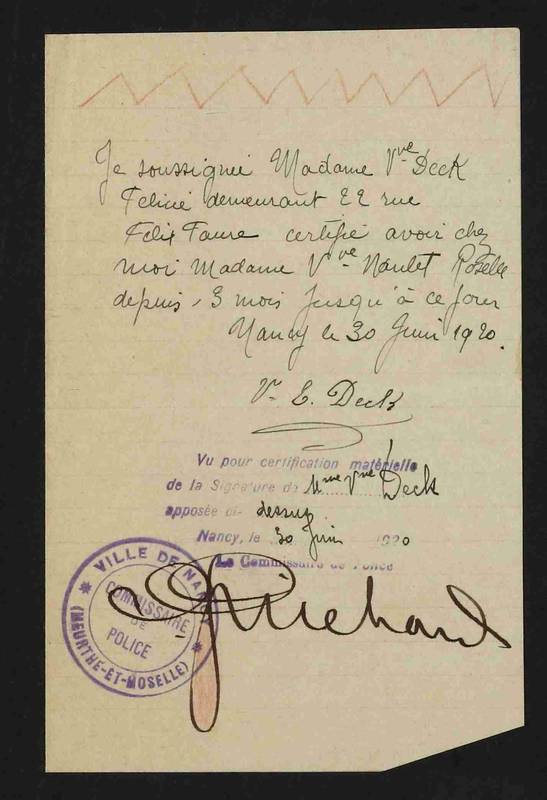 Je soussignée Madame Vve Deck
Felicie demeurant 22 rue
Felix Faure certifie avoir chez
moi Madame Vve Naulet Roselle
depuis 3 mois jusqu'à ce jour
Nancy le 30 Juin 1920.
Ve E. Deck
Vu pour certification matérielle
de la Signature de Mme Vve Deck
apposée ci-dessus
Nancy, le 30 Juin 1920
Le Commissaire de Police
VILLE DE NANCY
COMMISSAIRE
DE
POLICE
(MEURTHE-ET-MOSELLE)